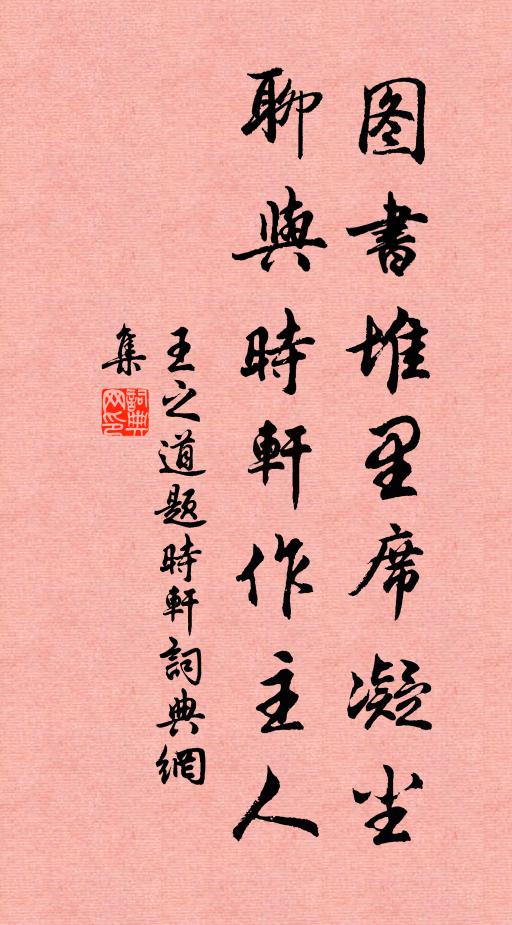 图書堆里席凝尘
聊與時軒作主人
王之道题時軒詞典網
集
詞典網印